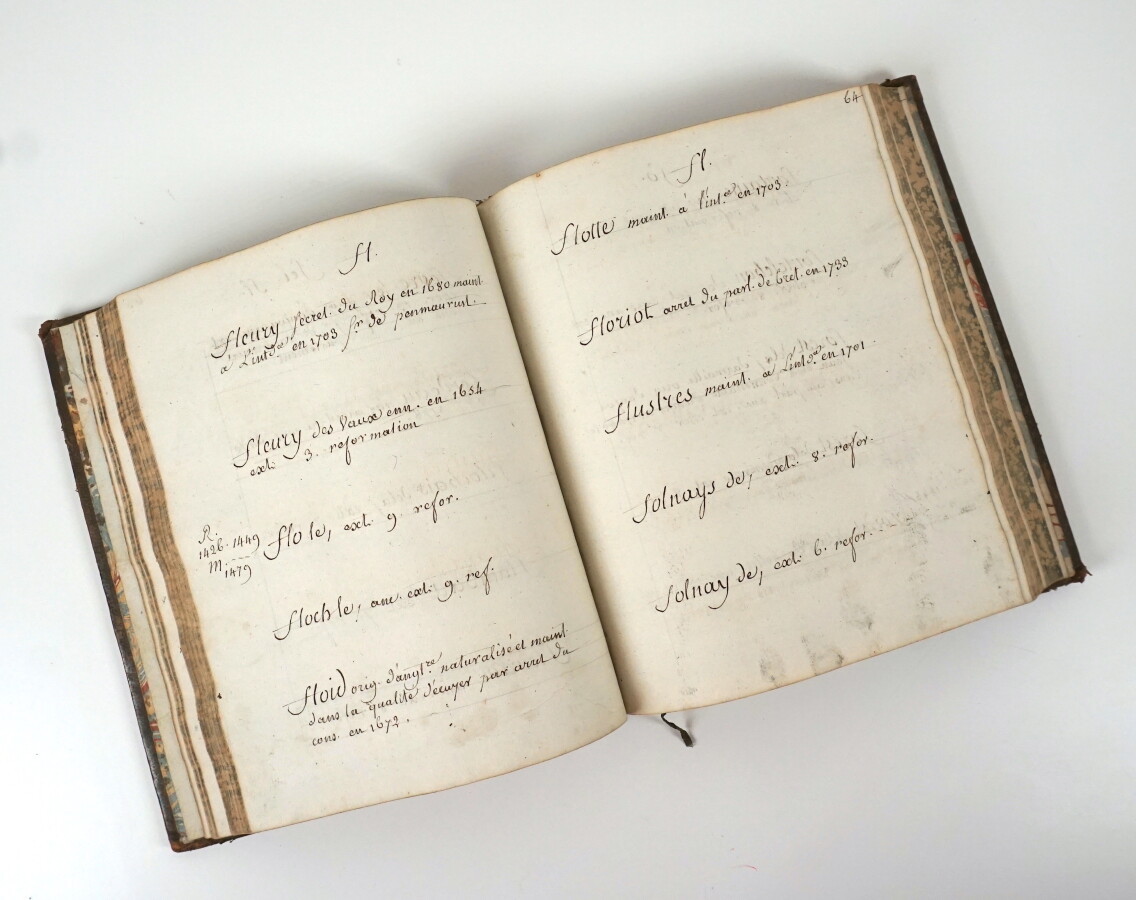 fl.
fleury secret. du Roy en 1680 maint
à L'intd.ce en 1703 sr. de penmaurust.
fleury des Vaux enn. en 1654
ext. 3. reformation
R.
1426. 1449
M.
1479
flo le, ext. 9. refor.
floch le, anc. ext. 9. ref.
floid orig. d'anglre. naturalisé et maint
dans la qualité d'écuyer par arret du
cons. en 1672.
64
fl.
flotte maint. à l'int.ce en 1703.
floriot arret du parl. de bret. en 1733
flustres maint. a L'intd.ce en 1701.
folnays de, ext. 8. refor.
folnay de, ext. 6. refor.